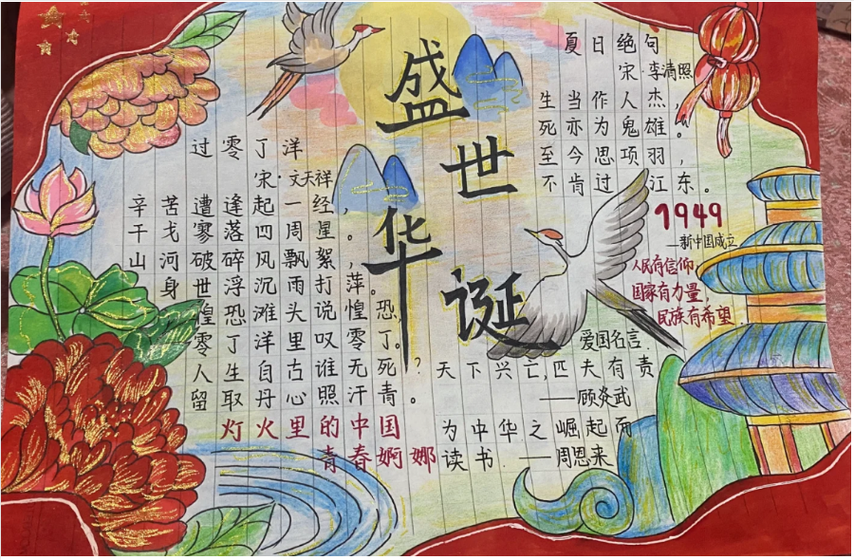 盛世华诞
过零丁洋
宋·文天祥
辛苦遭逢起一经，
干戈寥落四周星。
山河破碎风飘絮，
身世浮沉雨打萍。
惶恐滩头说惶恐，
零丁洋里叹零丁。
人生自古谁无死？
留取丹心照汗青。
灯火里的中国
青春婀娜
夏日绝句
宋·李清照
生当作人杰，
死亦为鬼雄。
至今思项羽，
不肯过江东。
1949
—新中国成立
人民有信仰，
国家有力量，
民族有希望
爱国名言
天下兴亡，匹夫有责
——顾炎武
为中华之崛起而
读书 —周恩来